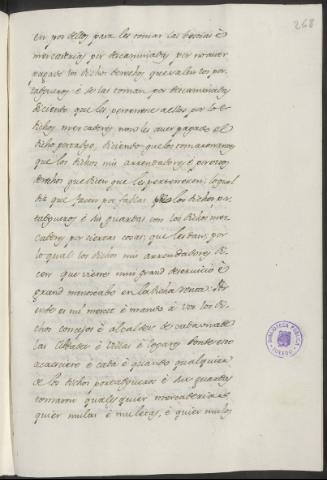 268
en pos dellos para les tomar las bestias è
mercaderias por descaminadas por no aver
pagado los dichos derechos, que valen los por-
tadgueros è se las toman por descaminadas
diciendo que les pertenece a ellos por lo è
dichos mercaderes non les aver pagado el
dicho portadgo, diciendo que los tomaron antes
que los dichos mis arrendadores è otros
derechos que dicen que les pertenecen; lo qual
diz que facen por fablas los dichos por-
tadgueros è sus guardas con los dichos mer-
caderes por ciertas cosas, que les dan; por
lo qual los dichos mis arrendadores di-
cen que viene à mi grand deservicio è
grand menoscabo en la dicha renta. Por
ende es mi merced è mando à vos los di-
chos concejos è alcaldes de cada una de
las cibdades è villas è logares donde esto
acaesciere è cada è quando qualquier
de los dichos portadgueros è sus guardas
tomaren qualesquier mercaderias,
quier mulas è muletas, è quier mulos
BIBLIOTECA PUBLICA
TOLEDO